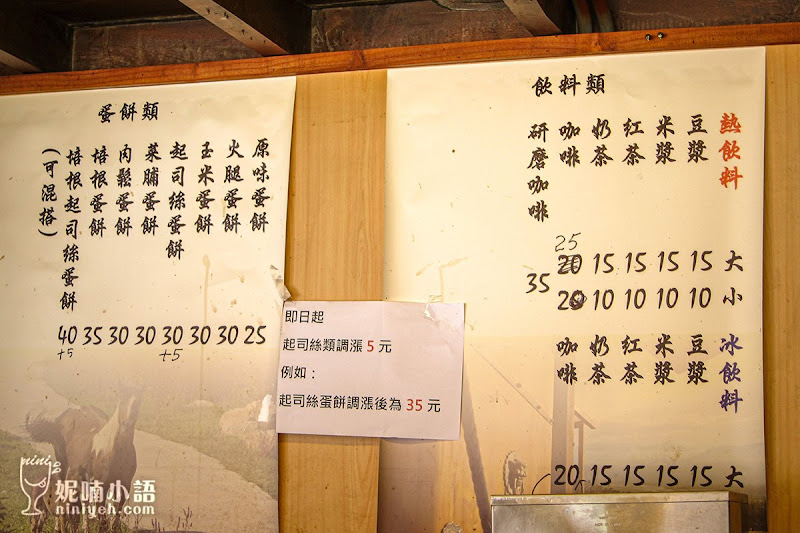 蛋餅類
原味蛋餅 25
火腿蛋餅 30
玉米蛋餅 30
起司絲蛋餅 30 +5
菜脯蛋餅 30
肉鬆蛋餅 30
培根蛋餅 35
培根起司絲蛋餅 40 +5
(可混搭)
即日起
起司絲類調漲 5 元
例如：
起司絲蛋餅調漲後為 35 元
飲料類
熱飲料 大 小
豆漿 15 10
米漿 15 10
紅茶 15 10
奶茶 15 10
咖啡 25 20
研磨咖啡 35
冰飲料 大
豆漿 15
米漿 15
紅茶 15
奶茶 15
咖啡 20
nini
妮喃小語
niniyeh.com